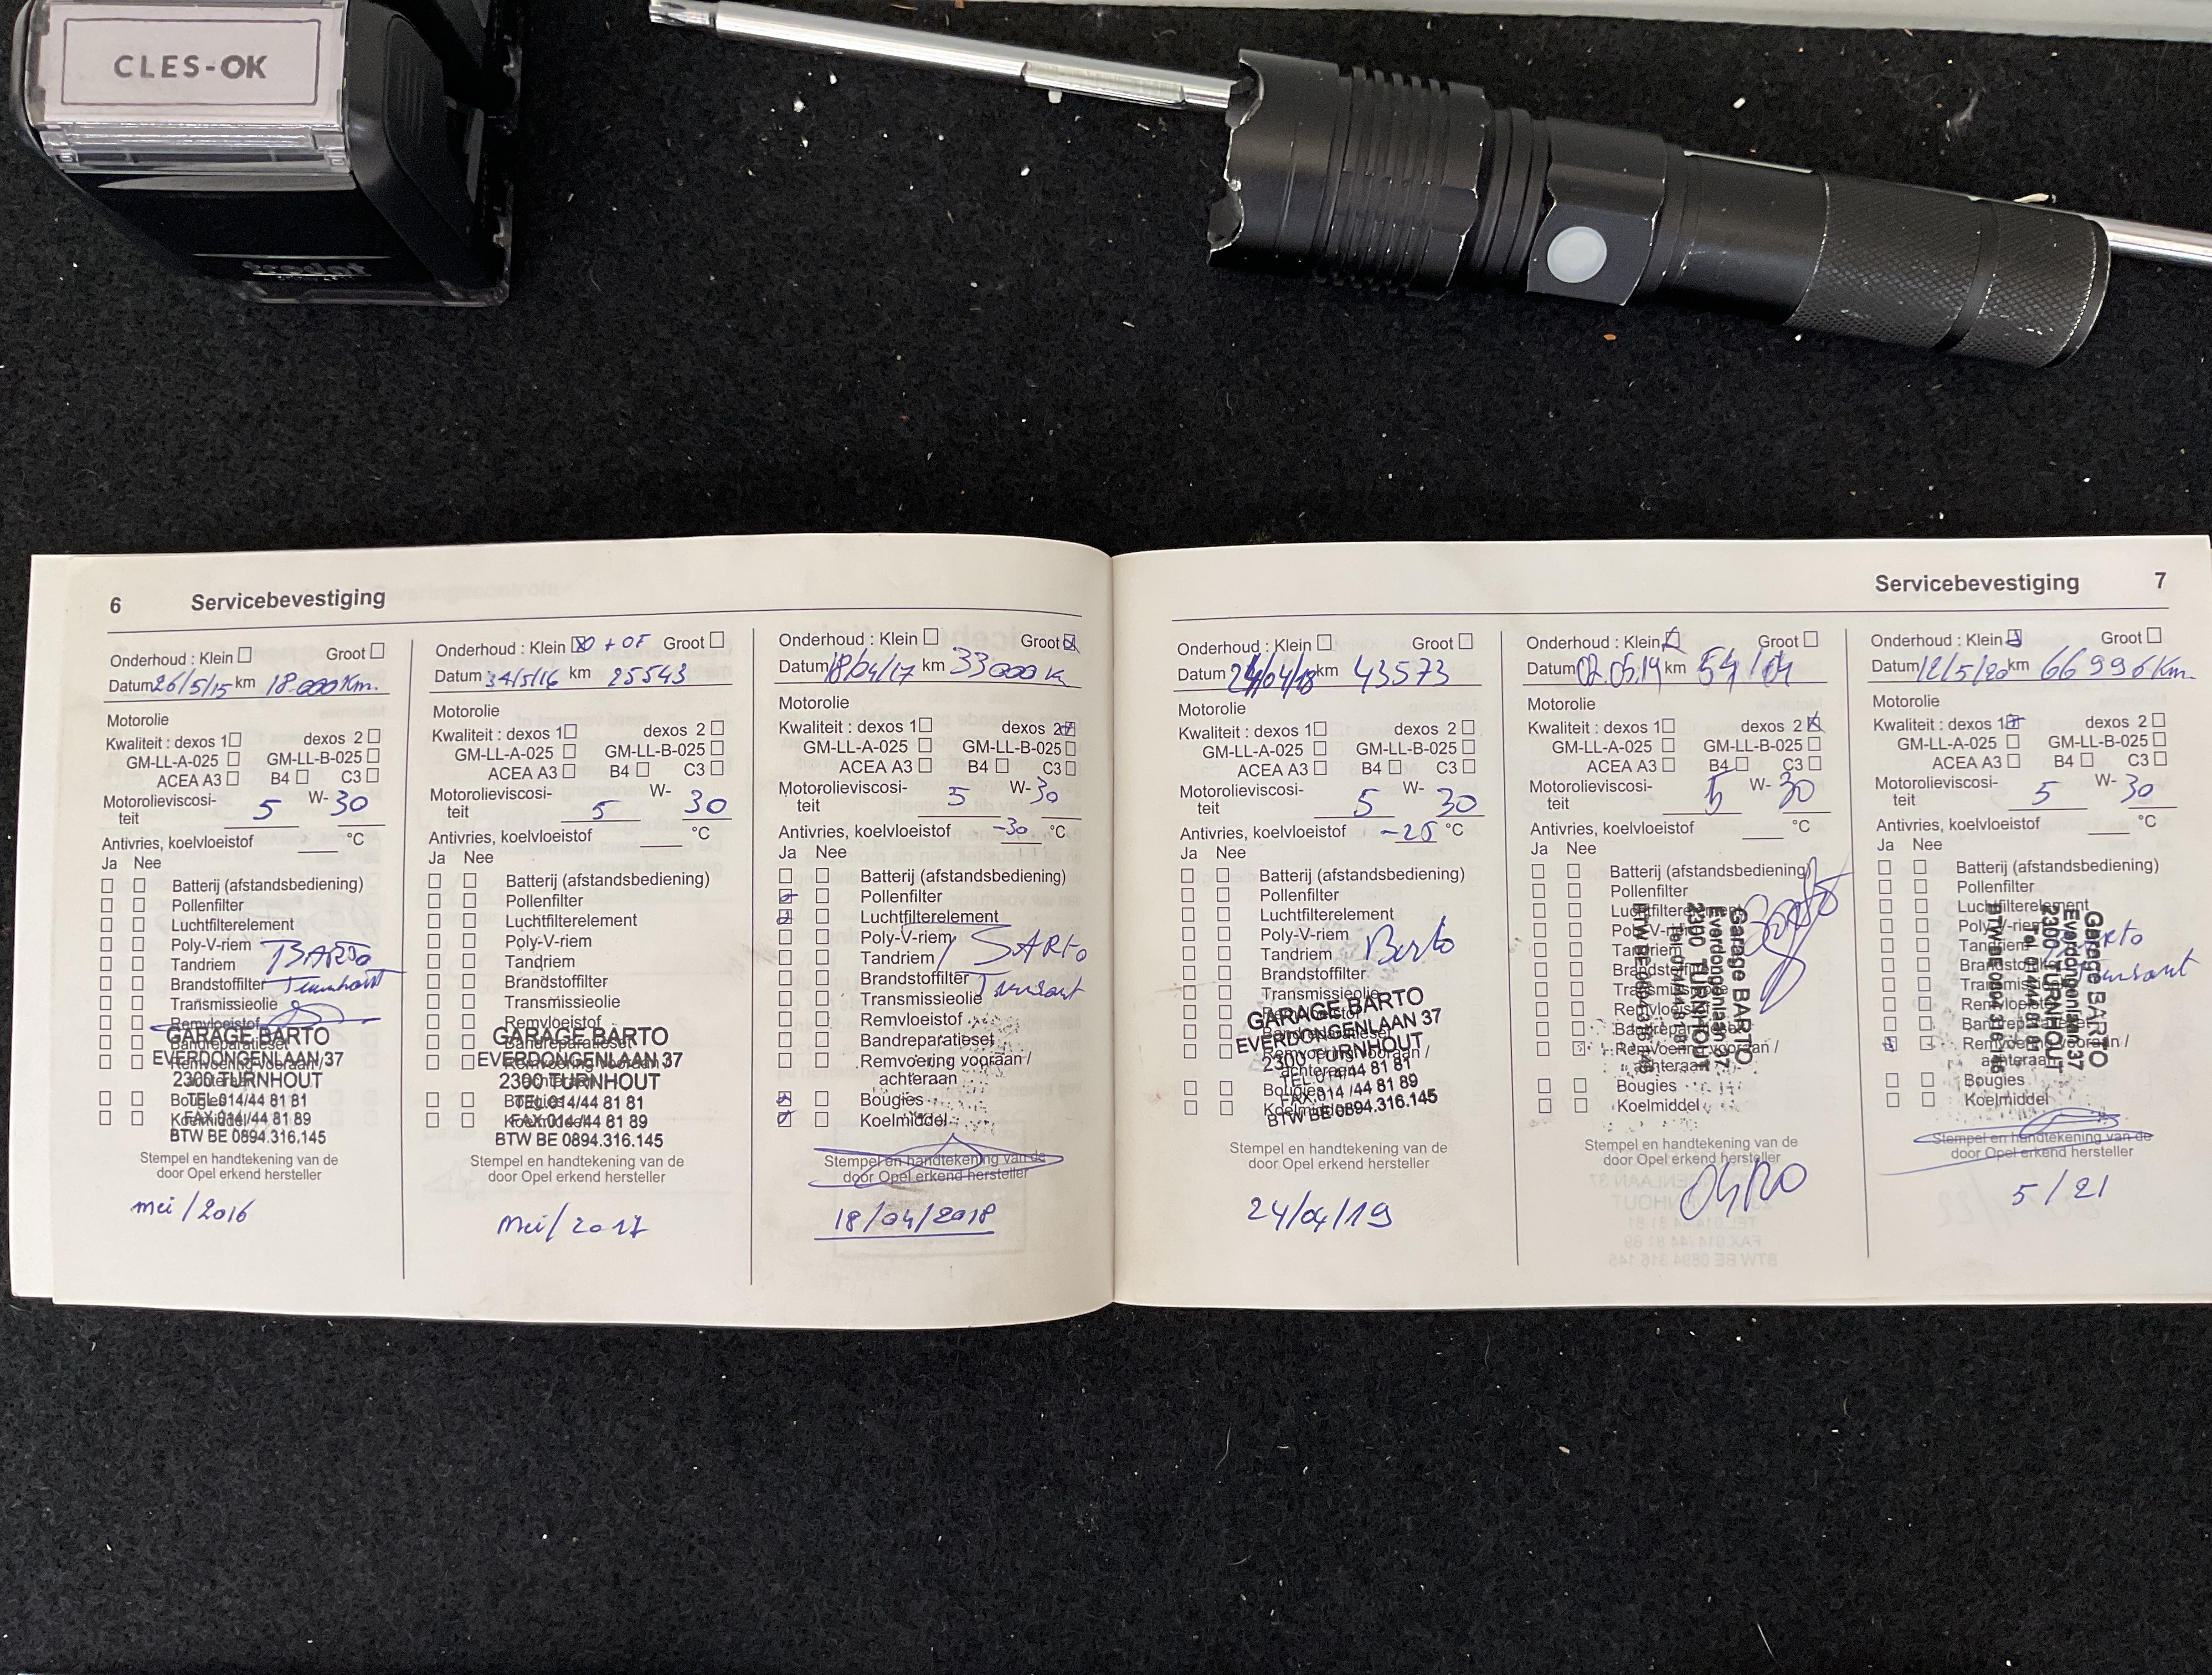 CLES-OK
trodat
6 Servicebevestiging
Onderhoud : Klein Groot
Datum 26/5/15 km 18.000 Km.
Motorolie
Kwaliteit : dexos 1 dexos 2
GM-LL-A-025 GM-LL-B-025
ACEA A3 B4 C3
Motorolieviscosi-
teit 5 W- 30
Antivries, koelvloeistof °C
Ja Nee
Batterij (afstandsbediening)
Pollenfilter
Luchtfilterelement
Poly-V-riem
Tandriem BARTO
Brandstoffilter Turnhout
Transmissieolie
Remvloeistof
GARAGE BARTO
Bandreparatieset
EVERDONGENLAAN 37
Remvoering vooraan /
2300 TURNHOUT
achteraan
Bougies
TEL.014/44 81 81
Koelmiddel
FAX.014/44 81 89
BTW BE 0894.316.145
Stempel en handtekening van de
door Opel erkend hersteller
mei/2016
Onderhoud : Klein + OF Groot
Datum /5/16 km 25543
Motorolie
Kwaliteit : dexos 1 dexos 2
GM-LL-A-025 GM-LL-B-025
ACEA A3 B4 C3
Motorolieviscosi-
teit 5 W- 30
Antivries, koelvloeistof °C
Ja Nee
Batterij (afstandsbediening)
Pollenfilter
Luchtfilterelement
Poly-V-riem
Tandriem
Brandstoffilter
Transmissieolie
Remvloeistof
GARAGE BARTO
Bandreparatieset
EVERDONGENLAAN 37
Remvoering vooraan /
2300 TURNHOUT
achteraan
Bougies
TEL.014/44 81 81
Koelmiddel
FAX.014/44 81 89
BTW BE 0894.316.145
Stempel en handtekening van de
door Opel erkend hersteller
mei/2017
Onderhoud : Klein Groot
Datum 18/04/17 km 33000 K
Motorolie
Kwaliteit : dexos 1 dexos 2
GM-LL-A-025 GM-LL-B-025
ACEA A3 B4 C3
Motorolieviscosi-
teit 5 W- 30
Antivries, koelvloeistof -30 °C
Ja Nee
Batterij (afstandsbediening)
Pollenfilter
Luchtfilterelement
Poly-V-riem
Tandriem BARTO
Brandstoffilter
Transmissieolie
Remvloeistof
Bandreparatieset
Remvoering vooraan /
achteraan
Bougies
Koelmiddel
Stempel en handtekening van de
door Opel erkend hersteller
18/04/2018
Servicebevestiging 7
Onderhoud : Klein Groot
Datum 24/04/18 km 43573
Motorolie
Kwaliteit : dexos 1 dexos 2
GM-LL-A-025 GM-LL-B-025
ACEA A3 B4 C3
Motorolieviscosi-
teit 5 W- 30
Antivries, koelvloeistof -25 °C
Ja Nee
Batterij (afstandsbediening)
Pollenfilter
Luchtfilterelement
Poly-V-riem
Tandriem Barto
Brandstoffilter
Transmissieolie
GARAGE BARTO
EVERDONGENLAAN 37
Remvoering vooraan /
2300 TURNHOUT
achteraan
TEL.014/44 81 81
Bougies
FAX.014/44 81 89
Koelmiddel
BTW BE 0894.316.145
Stempel en handtekening van de
door Opel erkend hersteller
24/04/19
Onderhoud : Klein Groot
Datum 02.05.19 km
Motorolie
Kwaliteit : dexos 1 dexos 2
GM-LL-A-025 GM-LL-B-025
ACEA A3 B4 C3
Motorolieviscosi-
teit 5 W- 30
Antivries, koelvloeistof °C
Ja Nee
Batterij (afstandsbediening)
Pollenfilter
Luchtfilterelement
Poly-V-riem
Tandriem
Brandstoffilter
Transmissieolie
Remvloeistof
Bandreparatieset
Remvoering vooraan /
achteraan
Bougies
Koelmiddel
Garage BARTO
Everdongenlaan 37
2300 TURNHOUT
Stempel en handtekening van de
door Opel erkend hersteller
Onderhoud : Klein Groot
Datum 12/5/20 km 66996 Km.
Motorolie
Kwaliteit : dexos 1 dexos 2
GM-LL-A-025 GM-LL-B-025
ACEA A3 B4 C3
Motorolieviscosi-
teit 5 W- 30
Antivries, koelvloeistof °C
Ja Nee
Batterij (afstandsbediening)
Pollenfilter
Luchtfilterelement
Poly-V-riem
Tandriem
Brandstoffilter
Transmissieolie
Remvloeistof
Bandreparatieset
Remvoering vooraan /
achteraan
Bougies
Koelmiddel
Garage BARTO
Everdongenlaan 37
2300 TURNHOUT
Stempel en handtekening van de
door Opel erkend hersteller
5/21